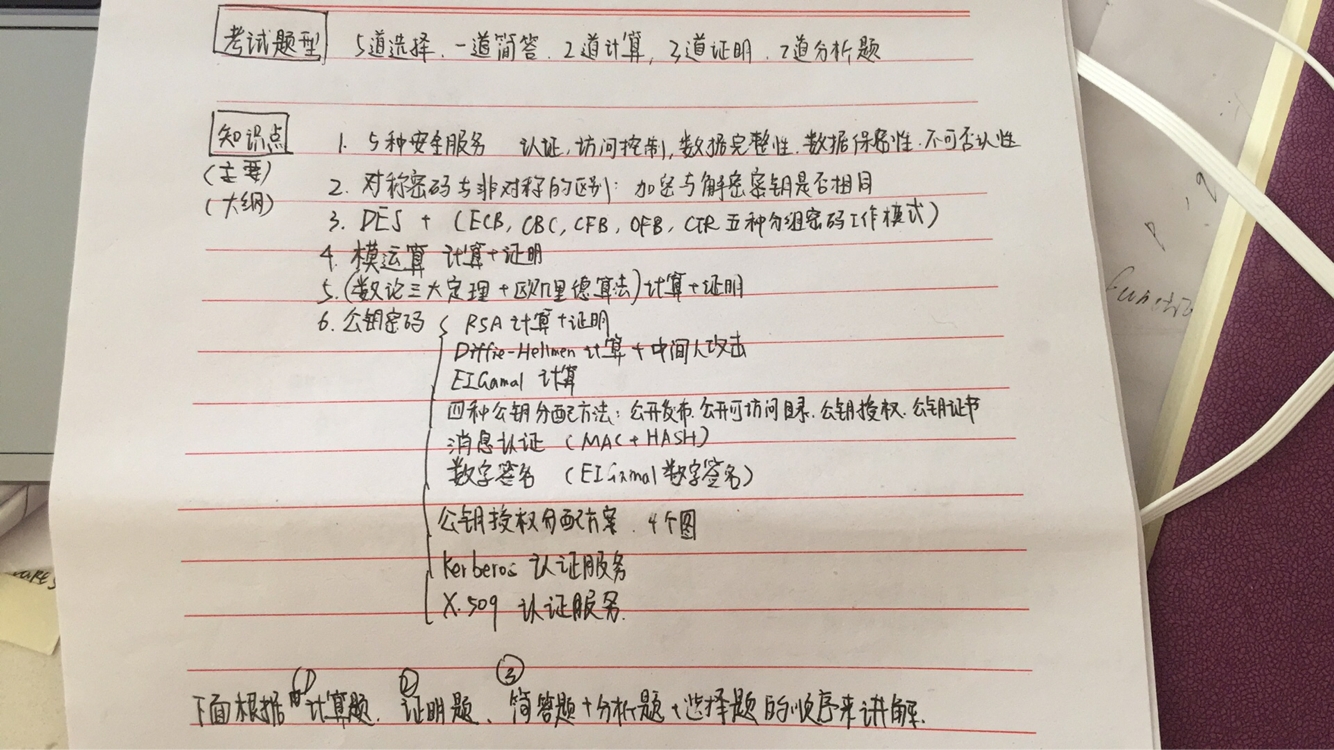 考试题型 5道选择、一道简答、2道计算,3道证明、2道分析题
知识点 1. 5种安全服务 认证,访问控制,数据完整性,数据保密性,不可否认性
(主要)
(大纲) 2. 对称密码与非对称的区别:加密与解密密钥是否相同
3. DES + (ECB, CBC, CFB, OFB, CTR 五种分组密码工作模式)
4. 模运算 计算+证明
5. (数论三大定理+欧几里德算法)计算+证明
6. 公钥密码 { RSA 计算+证明
Diffie-Hellmen 计算+中间人攻击
ElGamal 计算
四种公钥分配方法:公开发布,公开可访问目录,公钥授权,公钥证书
消息认证 (MAC+HASH)
数字签名 (ElGamal数字签名)
公钥授权分配方案、4个图
Kerberos 认证服务
X.509 认证服务.
下面根据①计算题、②证明题、③简答题+分析题+选择题的顺序来讲解.
Functio